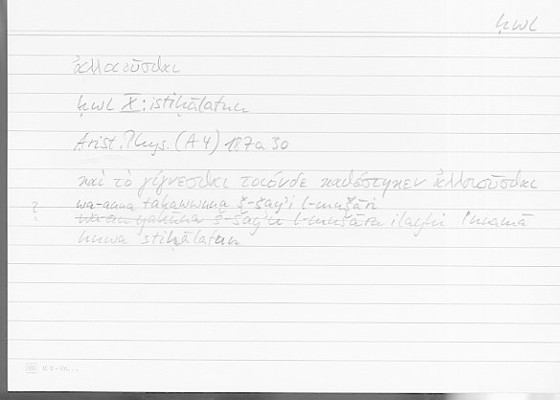 ḥwl
ἀλλοιοῦσθαι
ḥwl X: istiḥālatun
Arist. Phys. (A 4) 187a30
καὶ τὸ γίγνεσθαι τοιόνδε καθέστηκεν ἀλλοιοῦσθαι
wa-anna takawwuna š-šay'i l-mušāri
? wa-an yakūna š-šay'u l-mušāru ilayhi innamā
huwa stiḥālatun